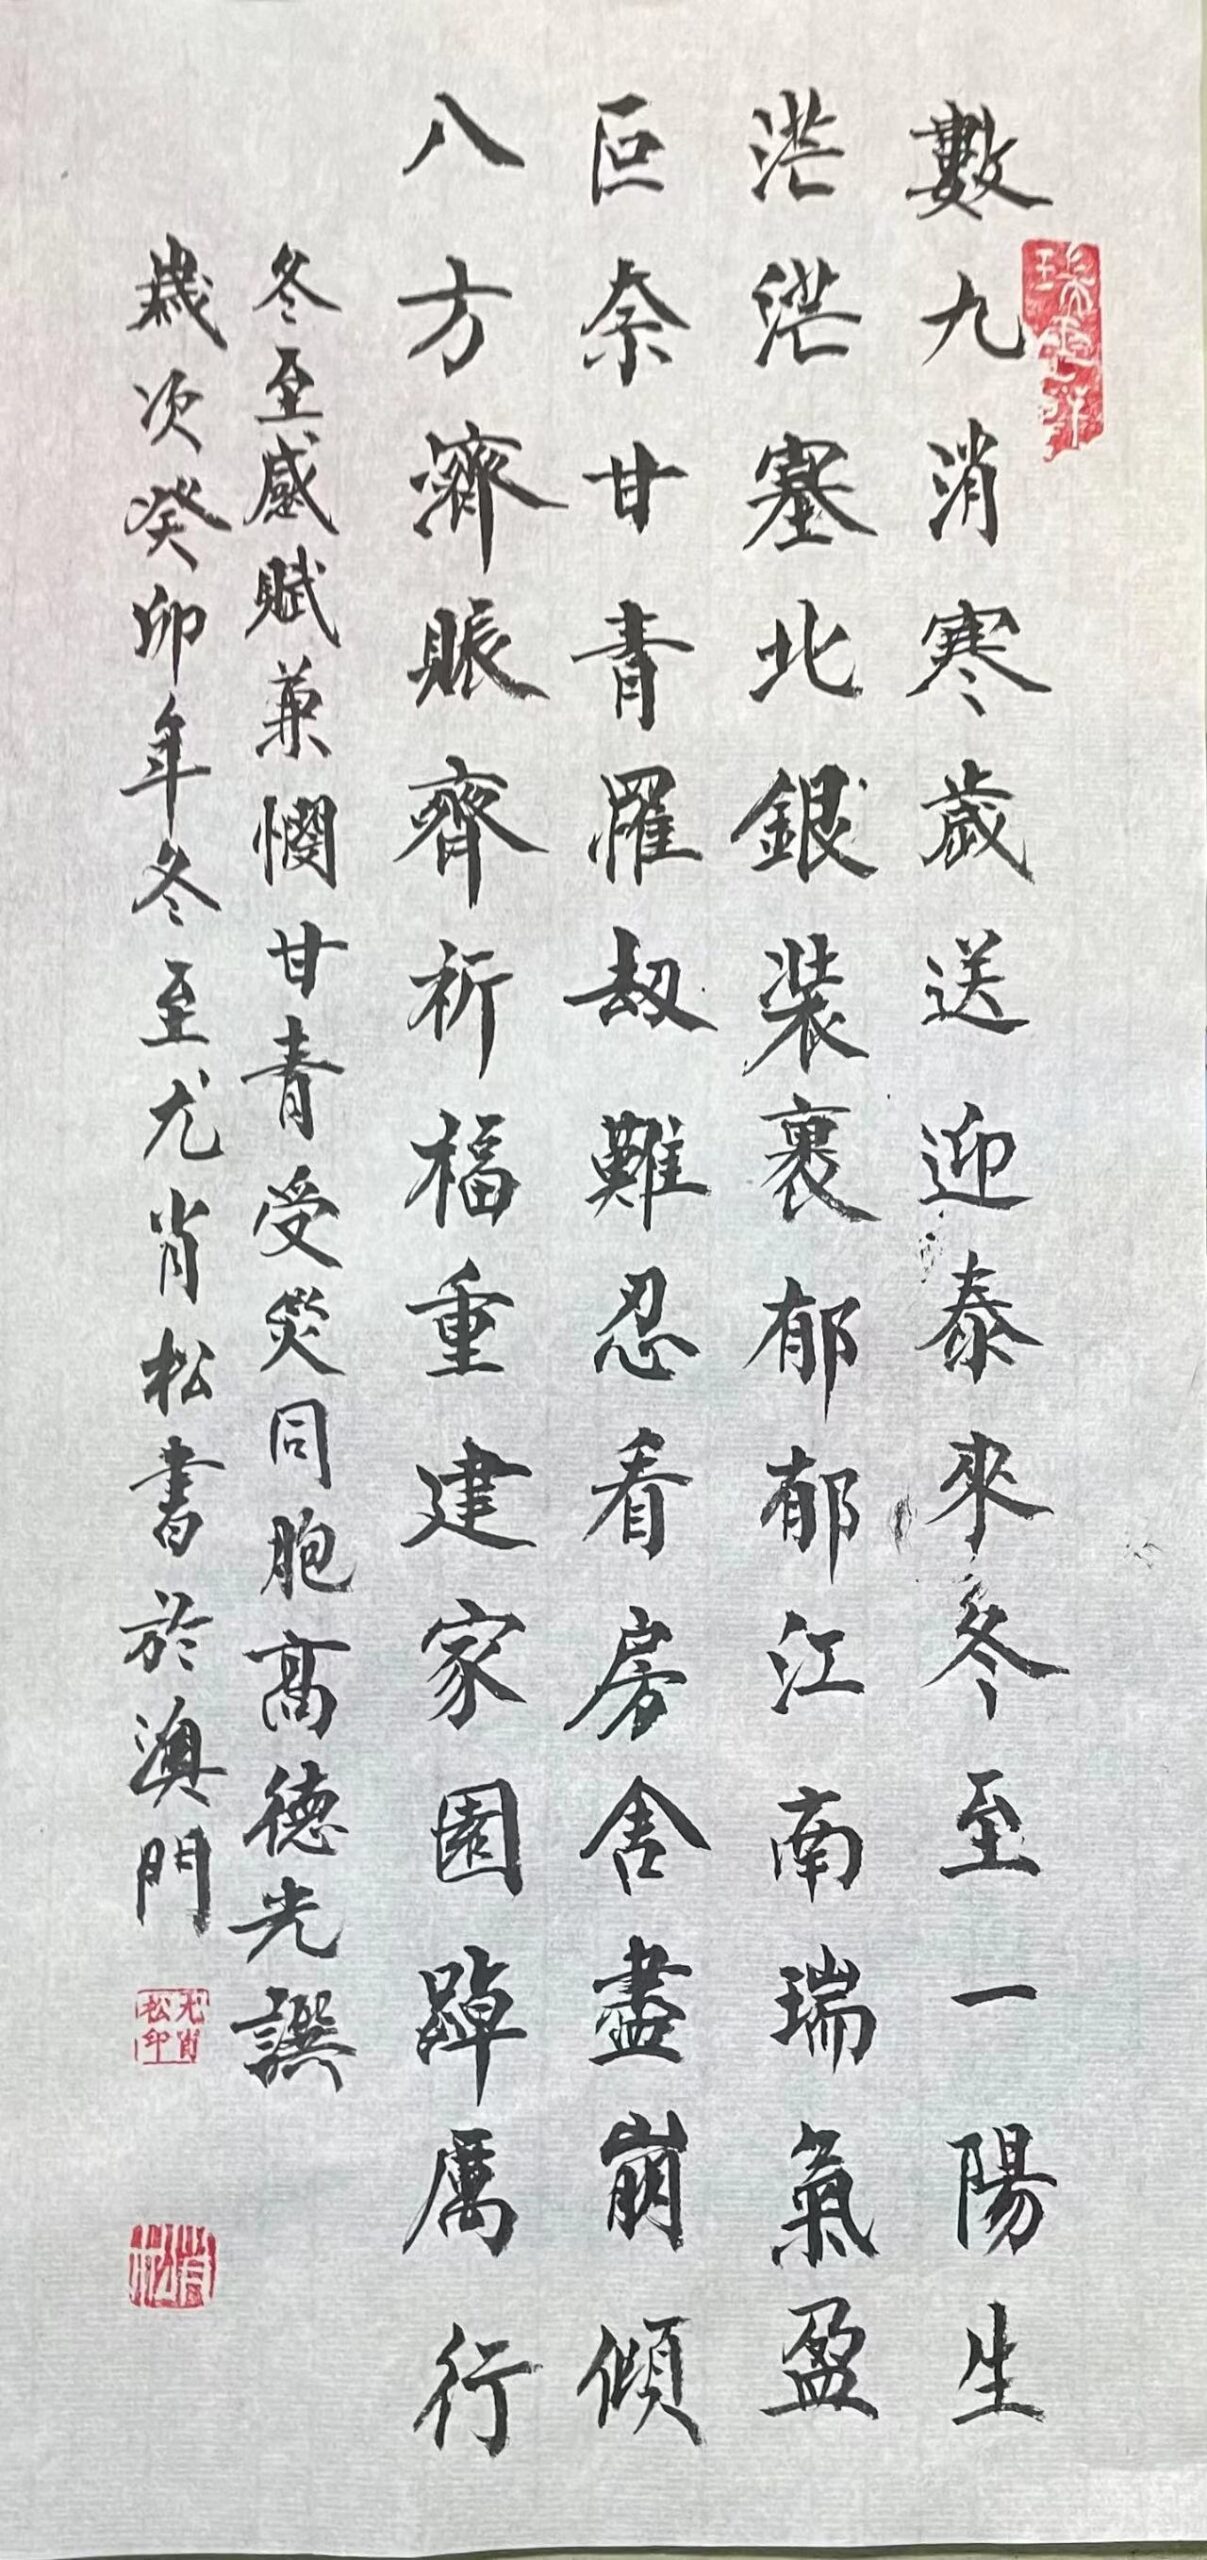 數九消寒歲送迎泰來冬至一陽生
茫茫塞北銀裝裹郁郁江南瑞氣盈
叵奈甘青罹劫難忍看房舍盡崩傾
八方濟賑齊祈福重建家園踔厲行
冬至感賦兼憫甘青受災同胞高德光譔
歲次癸卯年冬至尤肖松書於澳門
尤肖松印